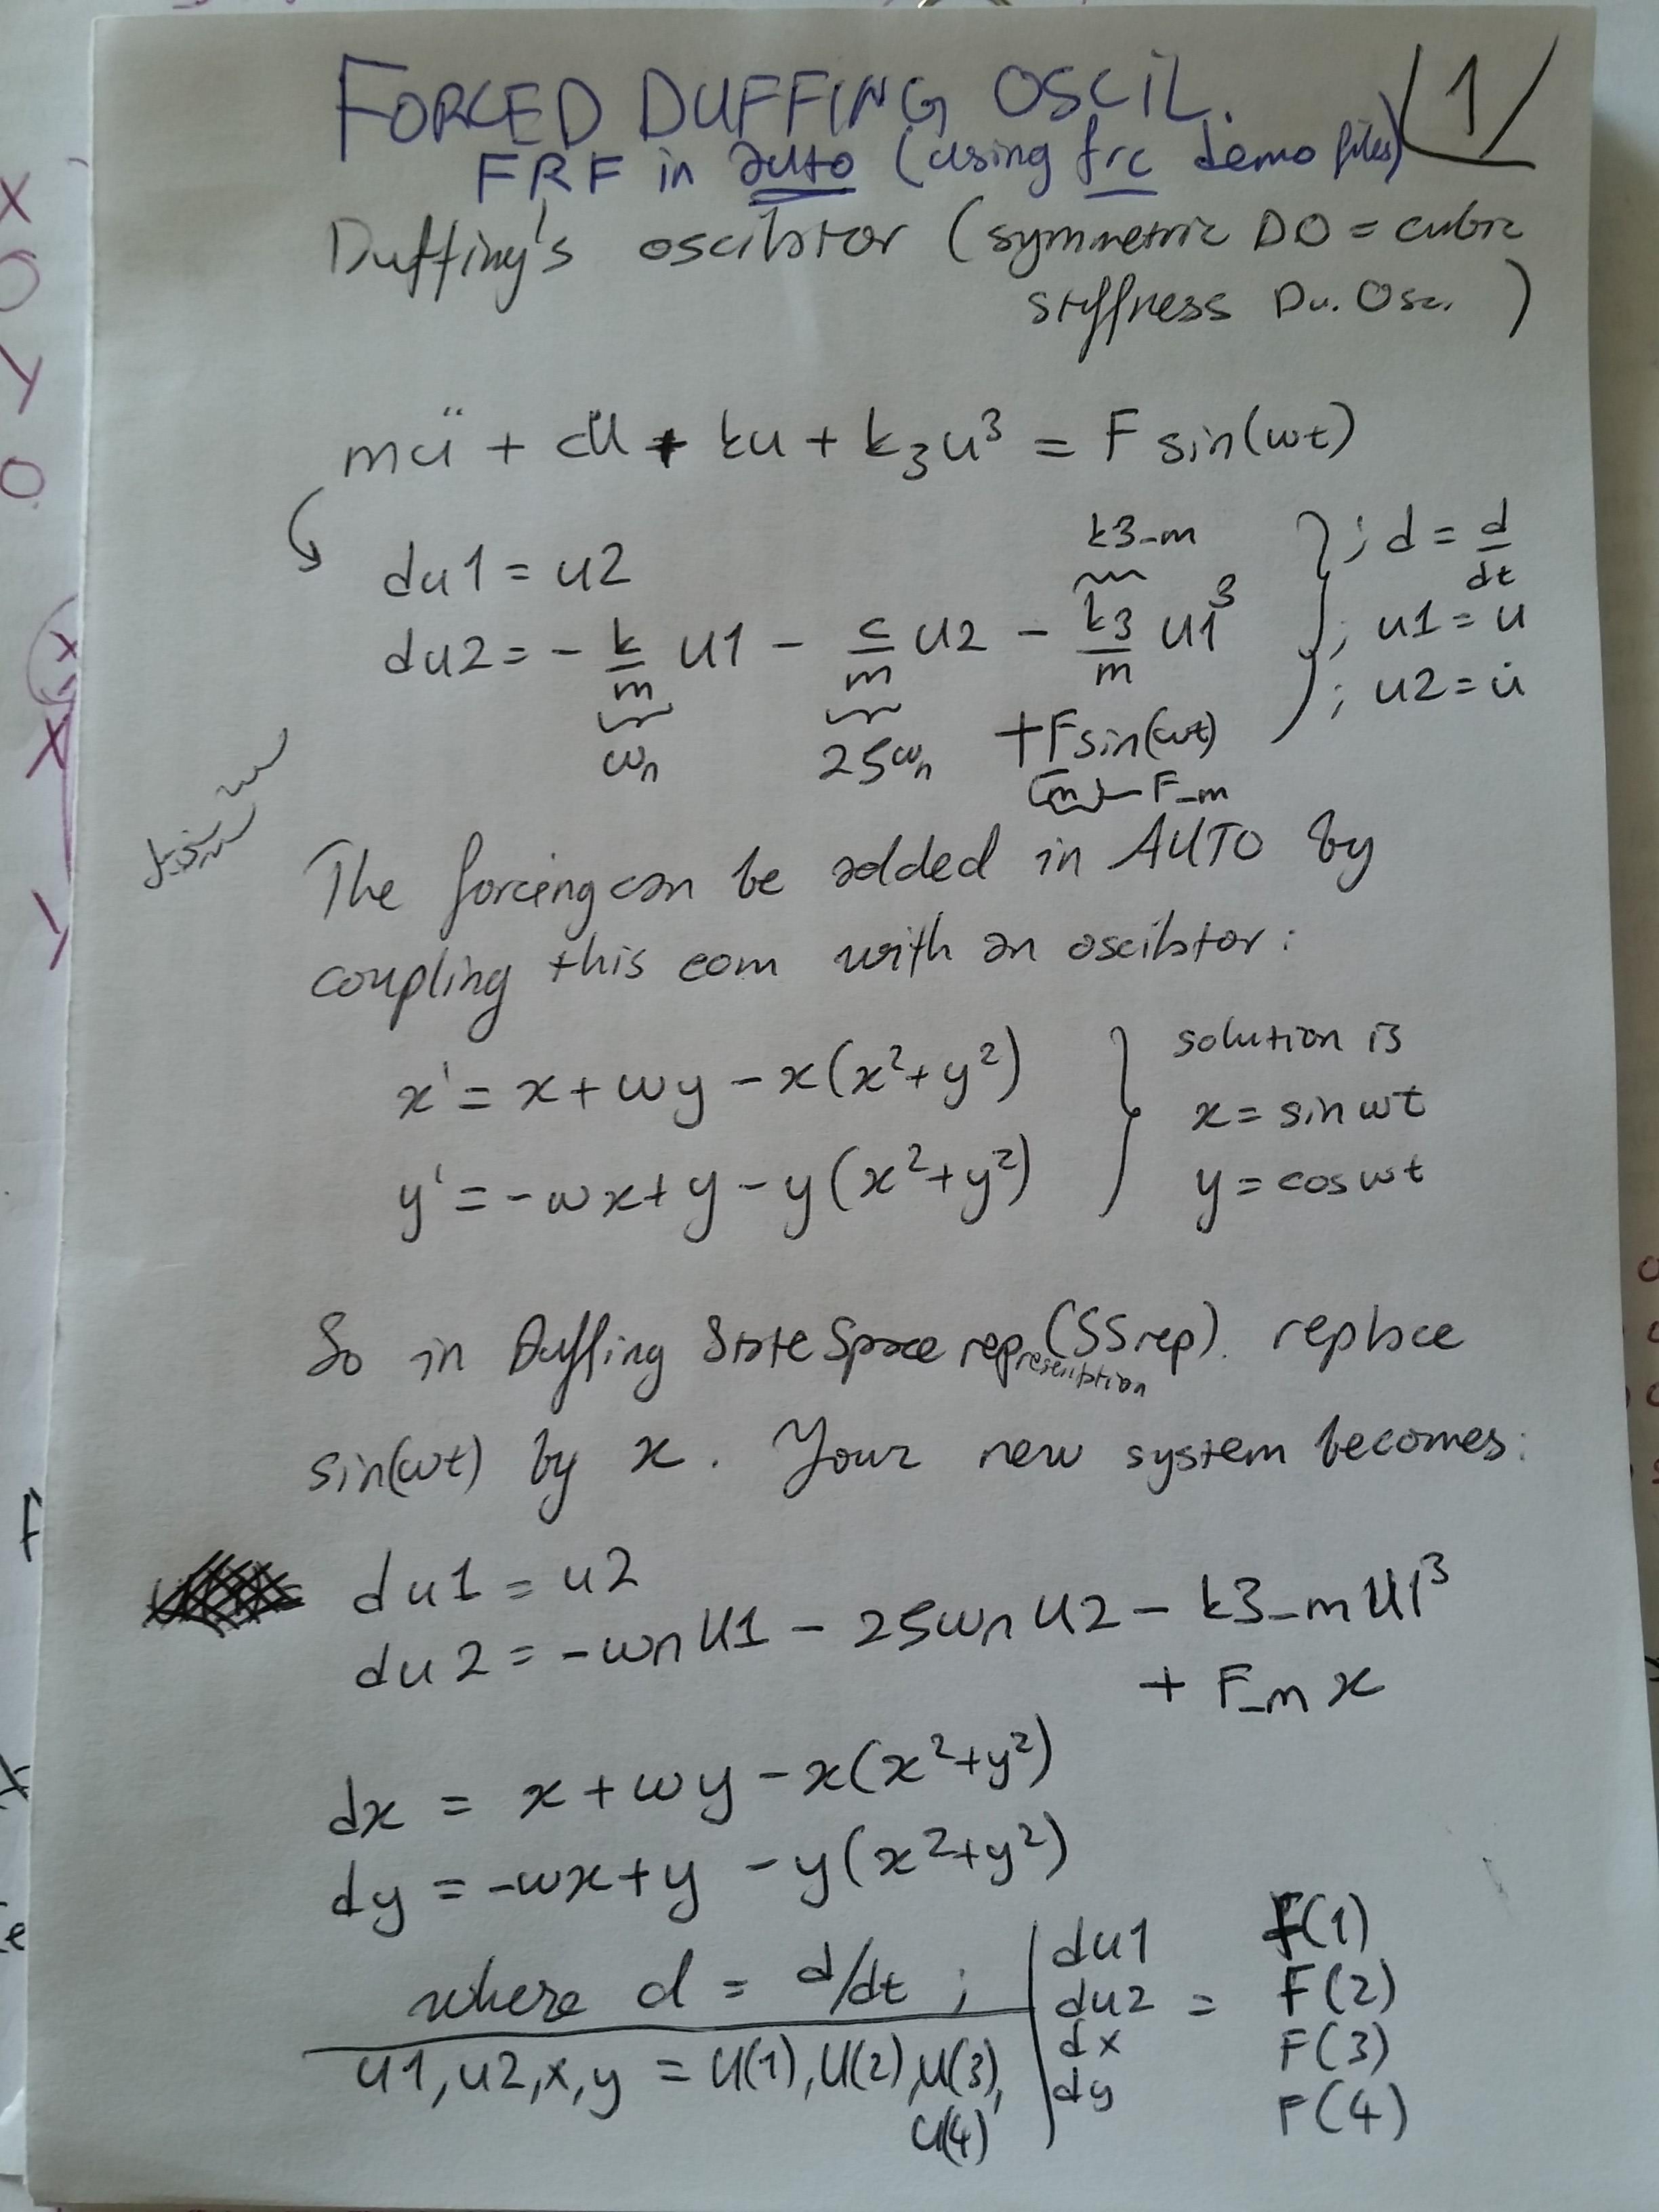 FORCED DUFFING OSCIL.
1
FRF in auto (using frc demo files)
Duffing's oscillator (symmetric DO = cubic
stiffness Du. Osc. )
mü + cu̇ + ku + k₃u³ = F sin(ωt)
k3_m
du1 = u2
; d = d/dt
du2 = - k/m u1 - c/m u2 - k3/m u1³
; u1 = u
; u2 = u̇
ωn 2ζωn + F sin(ωt)
m F_m
The forcing can be added in AUTO by
coupling this eom with an oscillator:
x' = x + ωy - x(x²+y²)
solution is
x = sin ωt
y' = -ωx + y - y(x²+y²)
y = cos ωt
So in Duffing State Space representation (SSrep). replace
sin(ωt) by x. Your new system becomes:
du1 = u2
du2 = -ωn u1 - 2ζωn u2 - k3_m u1³
+ F_m x
dx = x + ωy - x(x²+y²)
dy = -ωx + y - y(x²+y²)
where d = d/dt ;
u1, u2, x, y = U(1), U(2), U(3),
U(4)
du1 F(1)
du2 = F(2)
dx F(3)
dy F(4)